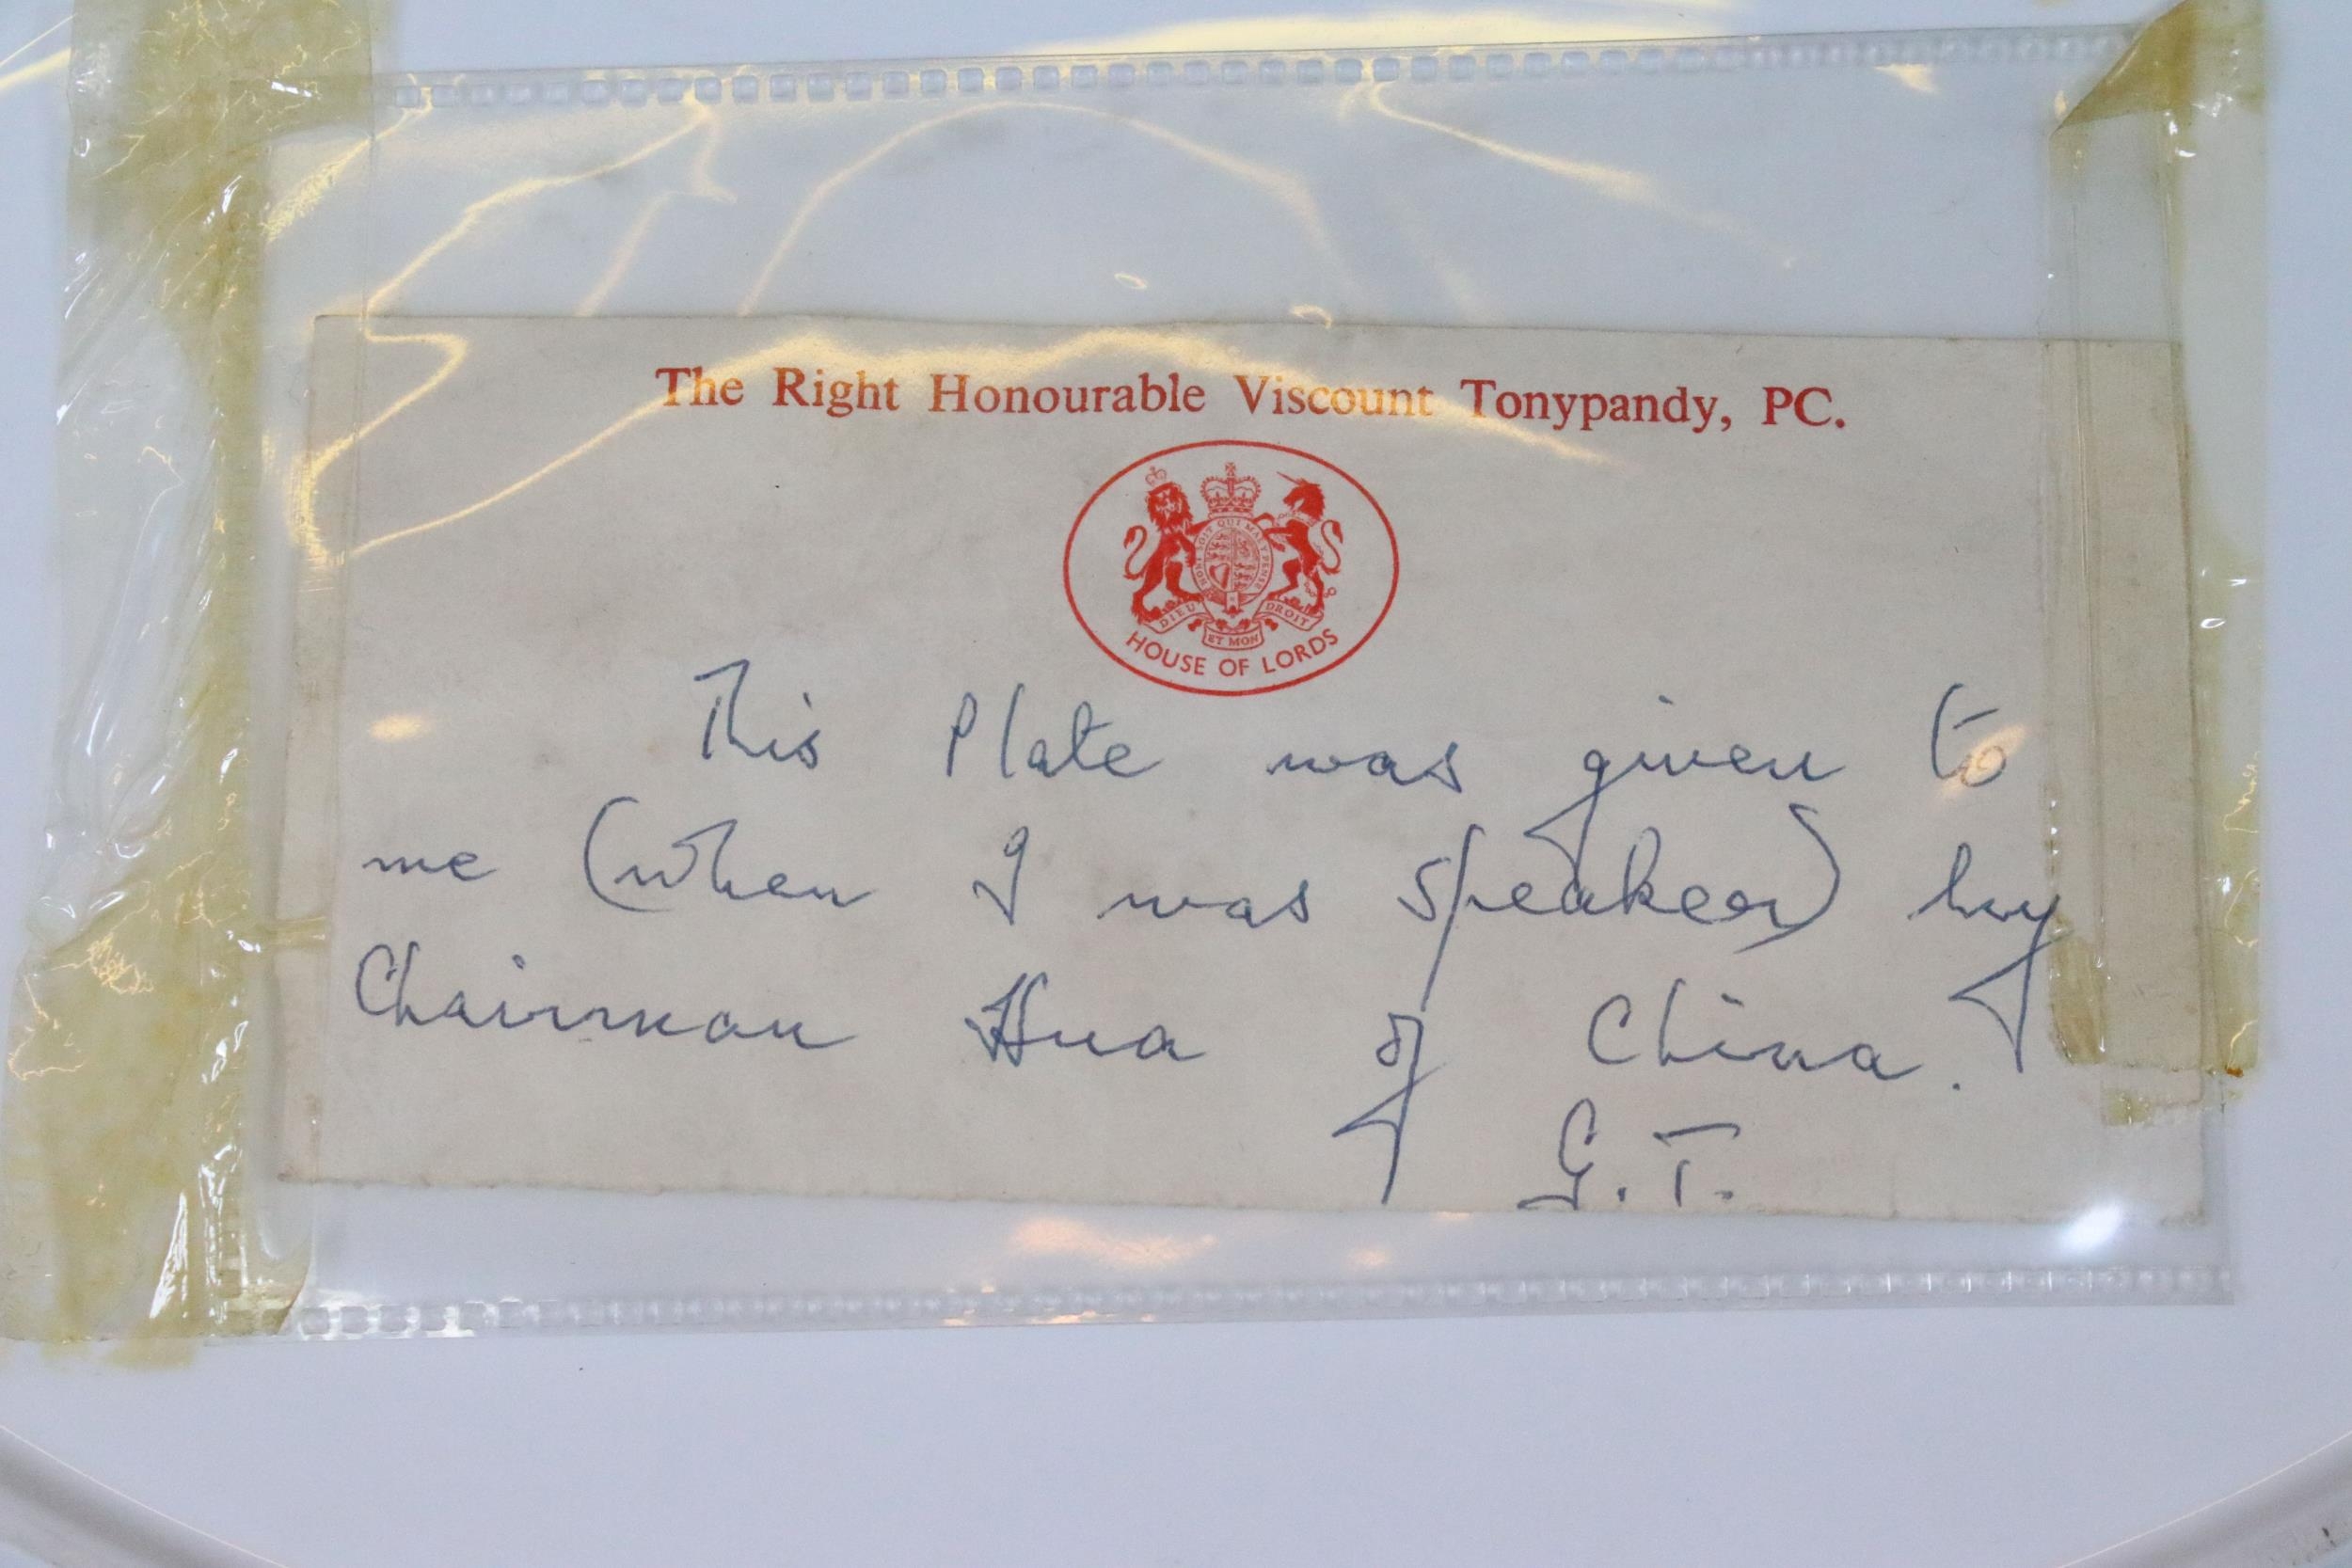 The Right Honourable Viscount Tonypandy, PC.
HONI SOIT QUI MAL Y PENSE
DIEU ET MON DROIT
HOUSE OF LORDS
This Plate was given to
me (when I was Speaker) by
Chairman Hua of China.
G.T.